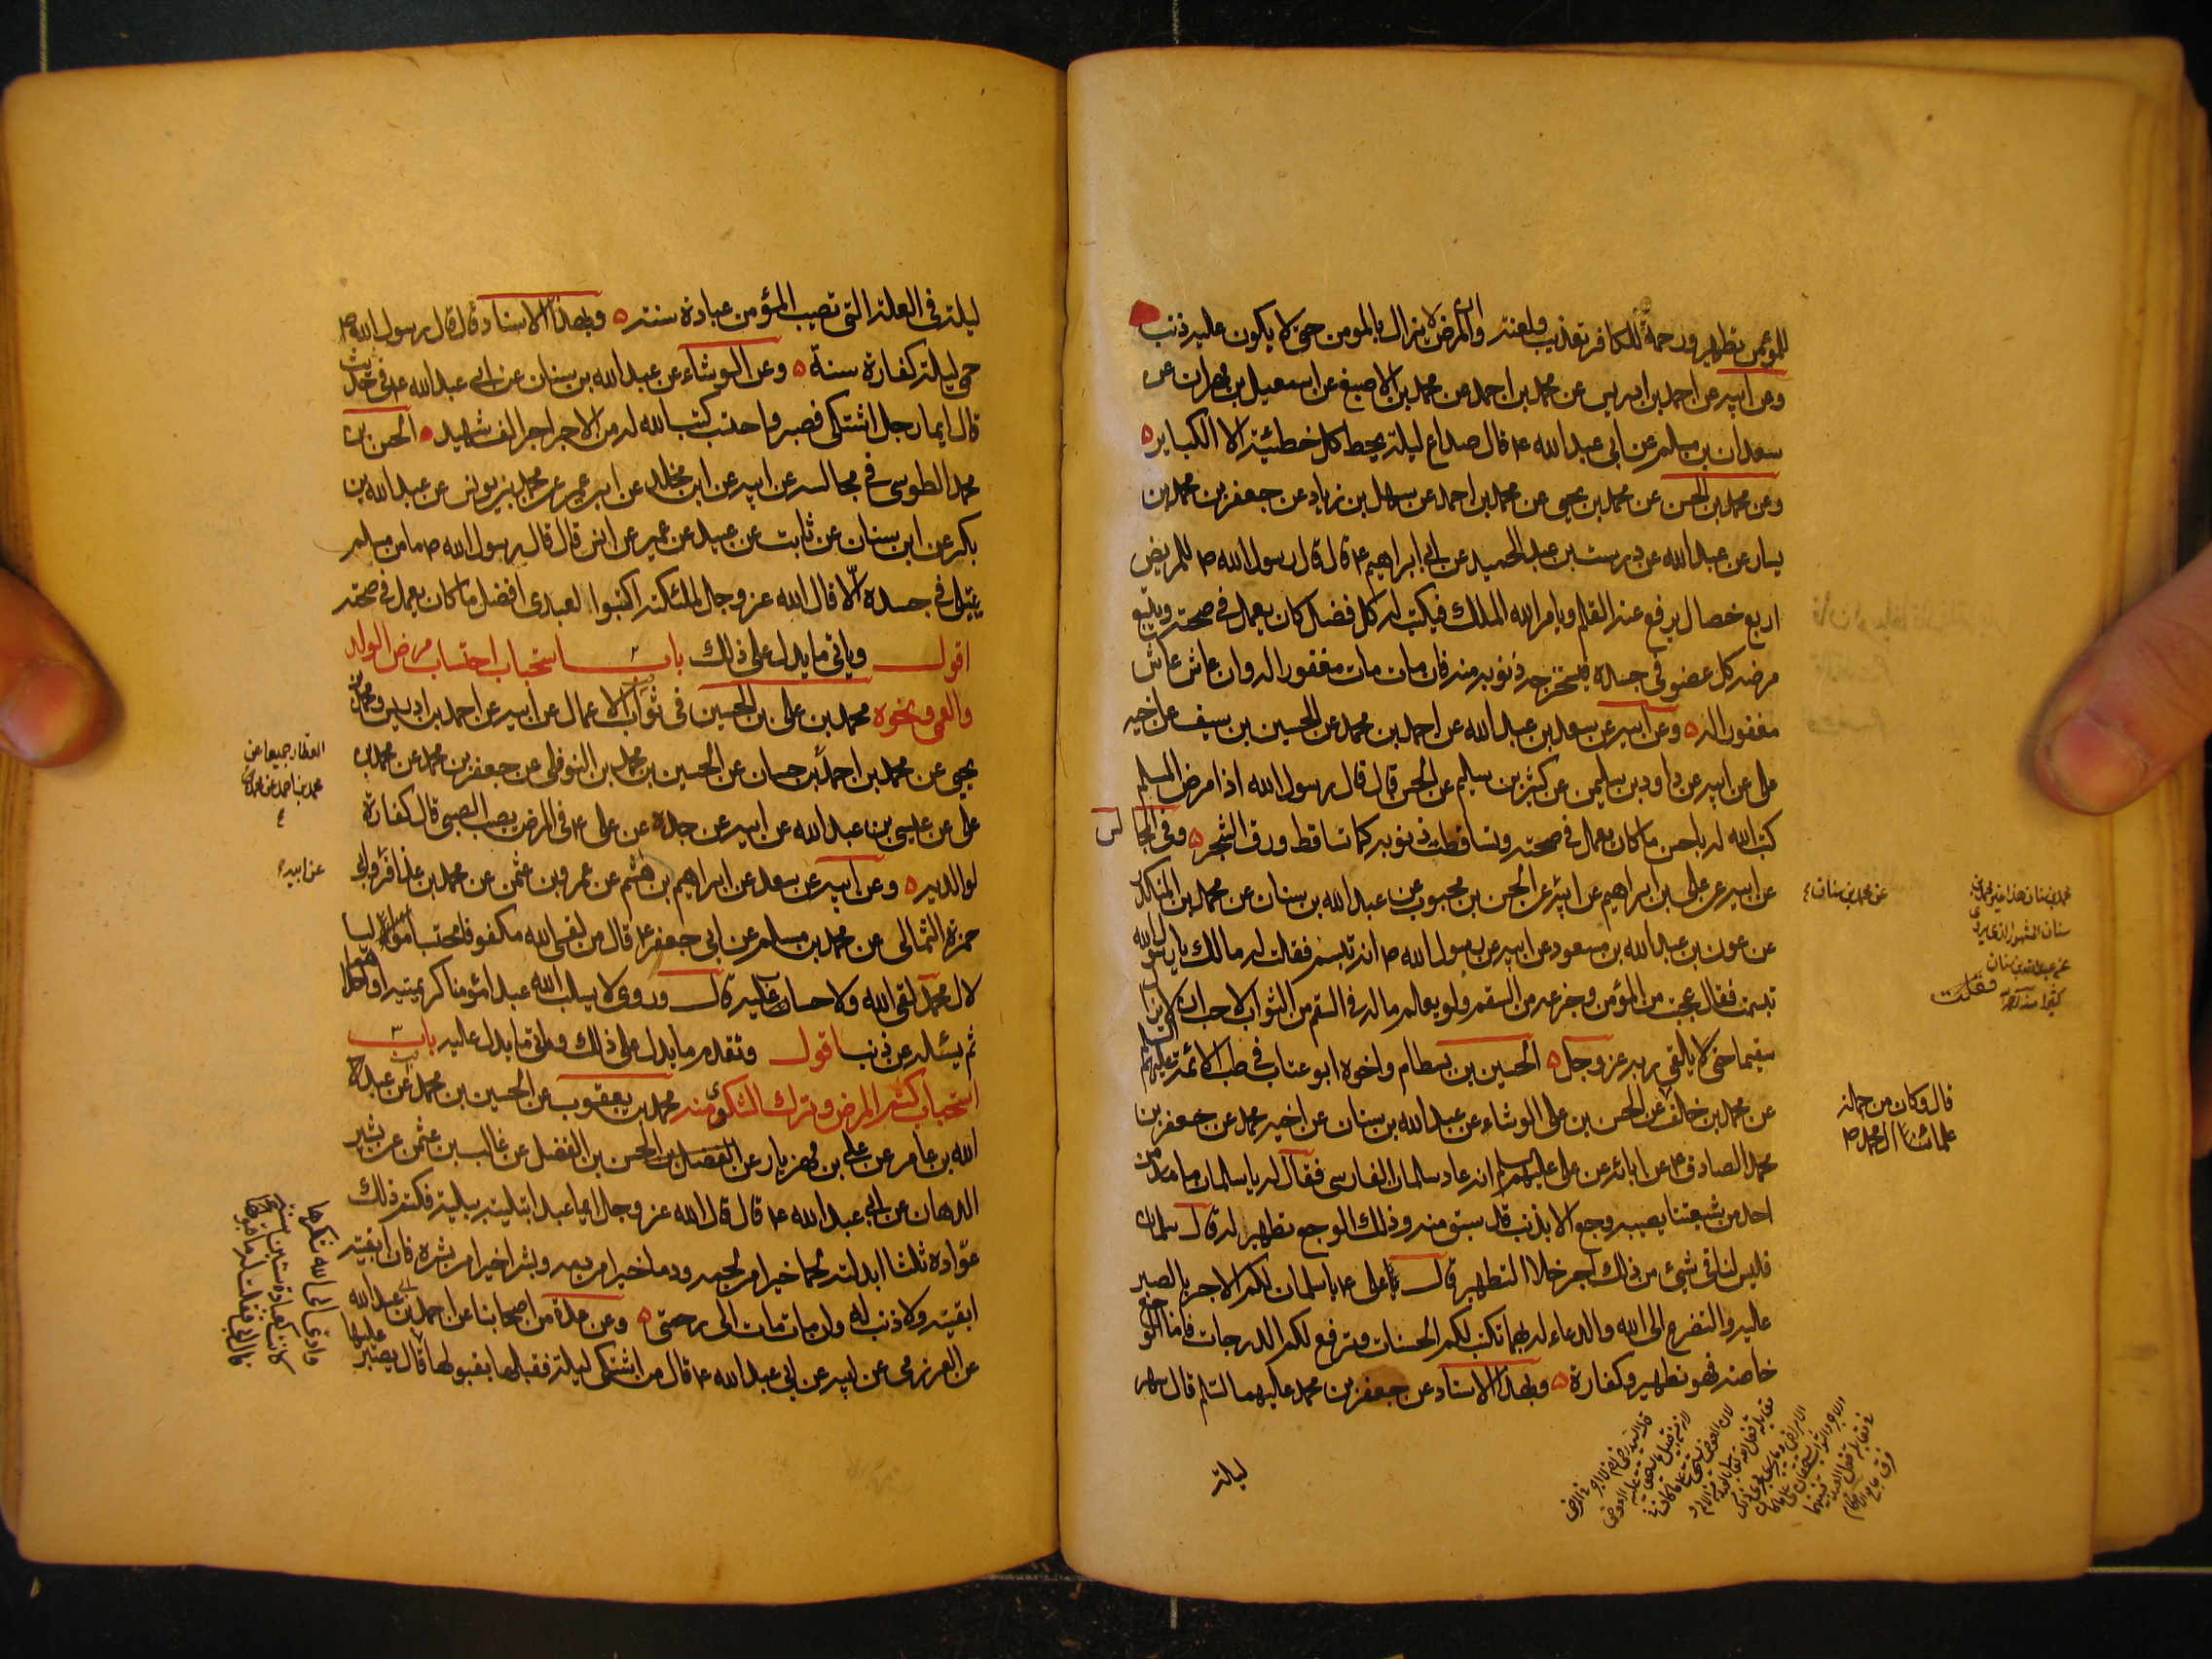 للمؤمن تطهير ورحمة وللكافر تعذيب ولعنة وان المرض لا يزال بالمومن حتى لا يكون عليه ذنب
وعن ابيه عن احمد بن ادريس عن محمد بن احمد عن محمد بن الاصبغ عن اسمعيل بن مهران عن
سعدان بن مسلم عن ابى عبد الله ع قال صداع ليلة يحط كل خطيئة الا الكباير
وعن محمد بن الحسن عن محمد بن يحيى عن محمد بن احمد عن سهل بن زياد عن جعفر بن محمد بن
يسار عن عبد الله عن درست بن عبد الحميد عن ابى ابراهيم ع قال قال رسول الله ص للمريض
اربع خصال يرفع عنه القلم ويامر الله الملك فيكتب له كل فضل كان يعمل فى صحته ويتبع
مرضه كل عضو فى جسده فيستخرج ذنوبه منه فان مات مات مغفورا له وان عاش عاش
مغفورا له وعن ابيه عن سعد بن عبد الله عن احمد بن محمد عن الحسين بن سيف عن اخيه
على عن ابيه عن داود بن سليمن عن كثير بن سليم عن الحسن قال قال رسول الله اذا مرض المسلم
كتب الله له باحسن ما كان يعمل فى صحته وتساقطت ذنوبه كما تساقط ورق الشجر وفى المجالس
عن ابيه عن على بن ابراهيم عن ابيه عن الحسن بن محبوب عن عبد الله بن سنان عن محمد بن المنكدر
عن عون بن عبد الله بن مسعود عن ابيه عن رسول الله ص انه تبسم فقلت له مالك يا رسول الله
تبسمت فقال عجبت من المؤمن وجزعه من السقم ولو يعلم ما له فى السقم من الثواب لاحب ان لا يزال
سقيما حتى يلقى ربه عز وجل الحسين بن بسطام واخوه ابو عتاب فى طب الائمة عليهم السلم
عن محمد بن خالف عن الحسن بن على الوشاء عن عبد الله بن سنان عن اخيه محمد عن جعفر بن
محمد الصادق ع عن ابائه عن على عليهم السلم انه عاد سلمان الفارسى فقال له يا سلمان ما من
احد من شيعتنا يصيبه وجع الا بذنب قد سبق منه وذلك الوجع تطهير له قال سلمان
فليس لنا فى شىء من ذلك اجر خلا التطهير قال على ع يا سلمان لكم الاجر بالصبر
عليه والتضرع الى الله والدعاء له بهما تكتب لكم الحسنات وترفع لكم الدرجات فاما الوجع
خاصة فهو تطهير وكفارة وبهذا الاسناد عن جعفر بن محمد عليهما السلم قال سهر
ليلة
عن محمد بن سنان
محمد بن سنان هذا غير محمد بن
سنان المشهور الذى يروى
عن عبد الله بن سنان
قال وكان من جملة
علمائنا ال محمد ص
ليلة فى العلة التى تصيب المؤمن عبادة سنة وبهذا الاسناد قال قال رسول الله ص
حمى ليلة كفارة سنة وعن الوشاء عن عبد الله بن سنان عن ابى عبد الله ع فى حديث
قال ايما رجل اشتكى فصبر واحتسب كتب الله له من الاجر اجر الف شهيد الحسن بن
محمد الطوسى فى مجالسه عن ابيه عن ابن مخلد عن ابى عمر عن محمد بن يونس عن عبد الله بن
بكر عن ابن سنان عن ثابت عن عبيد عن عمير عن انس قال قال رسول الله ص ما من مسلم
يبتلى فى جسده الا قال الله عز وجل لملئكته اكتبوا لعبدى افضل ما كان يعمل فى صحته
اقول وياتى ما يدل على ذلك باب استحباب احتساب مرض الولد
والعمى ونحوه محمد بن على بن الحسين فى ثواب الاعمال عن ابيه عن احمد بن ادريس ومحمد بن
يحيى عن محمد بن احمد بن حسان عن الحسين بن محمد بن النوفلى عن جعفر بن محمد عن محمد بن
على عن عيسى بن عبد الله عن ابيه عن جده عن على ع فى المرض يصيب الصبى قال كفارة
لوالديه وعن ابيه عن سعد عن ابراهيم بن هشم عن عمرو بن عثمن عن محمد بن عذافر وابى
حمزة الثمالى عن محمد بن مسلم عن ابى جعفر ع قال من لقى الله مكفوفا محتسبا مواليا
لال محمد لقى الله ولا حساب عليه قال وروى لا يسلب الله عبدا مؤمنا كريمتيه او احدهما
ثم يسئله عن ذنب اقول وتقدم ما يدل على ذلك وياتى ما يدل عليه باب
استحباب كتم المرض وترك الشكوى منه محمد بن يعقوب عن الحسين بن محمد عن عبد
الله بن عامر عن على بن مهزيار عن الحسن بن الفضل عن غالب بن عثمن عن بشير
الدهان عن ابى عبد الله ع قال قال الله عز وجل ايما عبد ابتليته ببلية فكتم ذلك
عواده ثلثا ابدلته لحما خيرا من لحمه ودما خيرا من دمه وبشرا خيرا من بشره فان ابقيته
ابقيته ولا ذنب له وان مات مات الى رحمتى وعن عدة من اصحابنا عن احمد بن ابى عبد الله
عن العزرمى عن ابيه عن ابى عبد الله ع قال من اشتكى ليلة فقبلها بقبولها قال يصبر عليها
العطار جميعا عن
محمد بن احمد عن محمد بن
عن ابيه
وادى الى الله شكرها
كانت كعبادة ستين سنة
قال ابى فقلت له ما قبولها